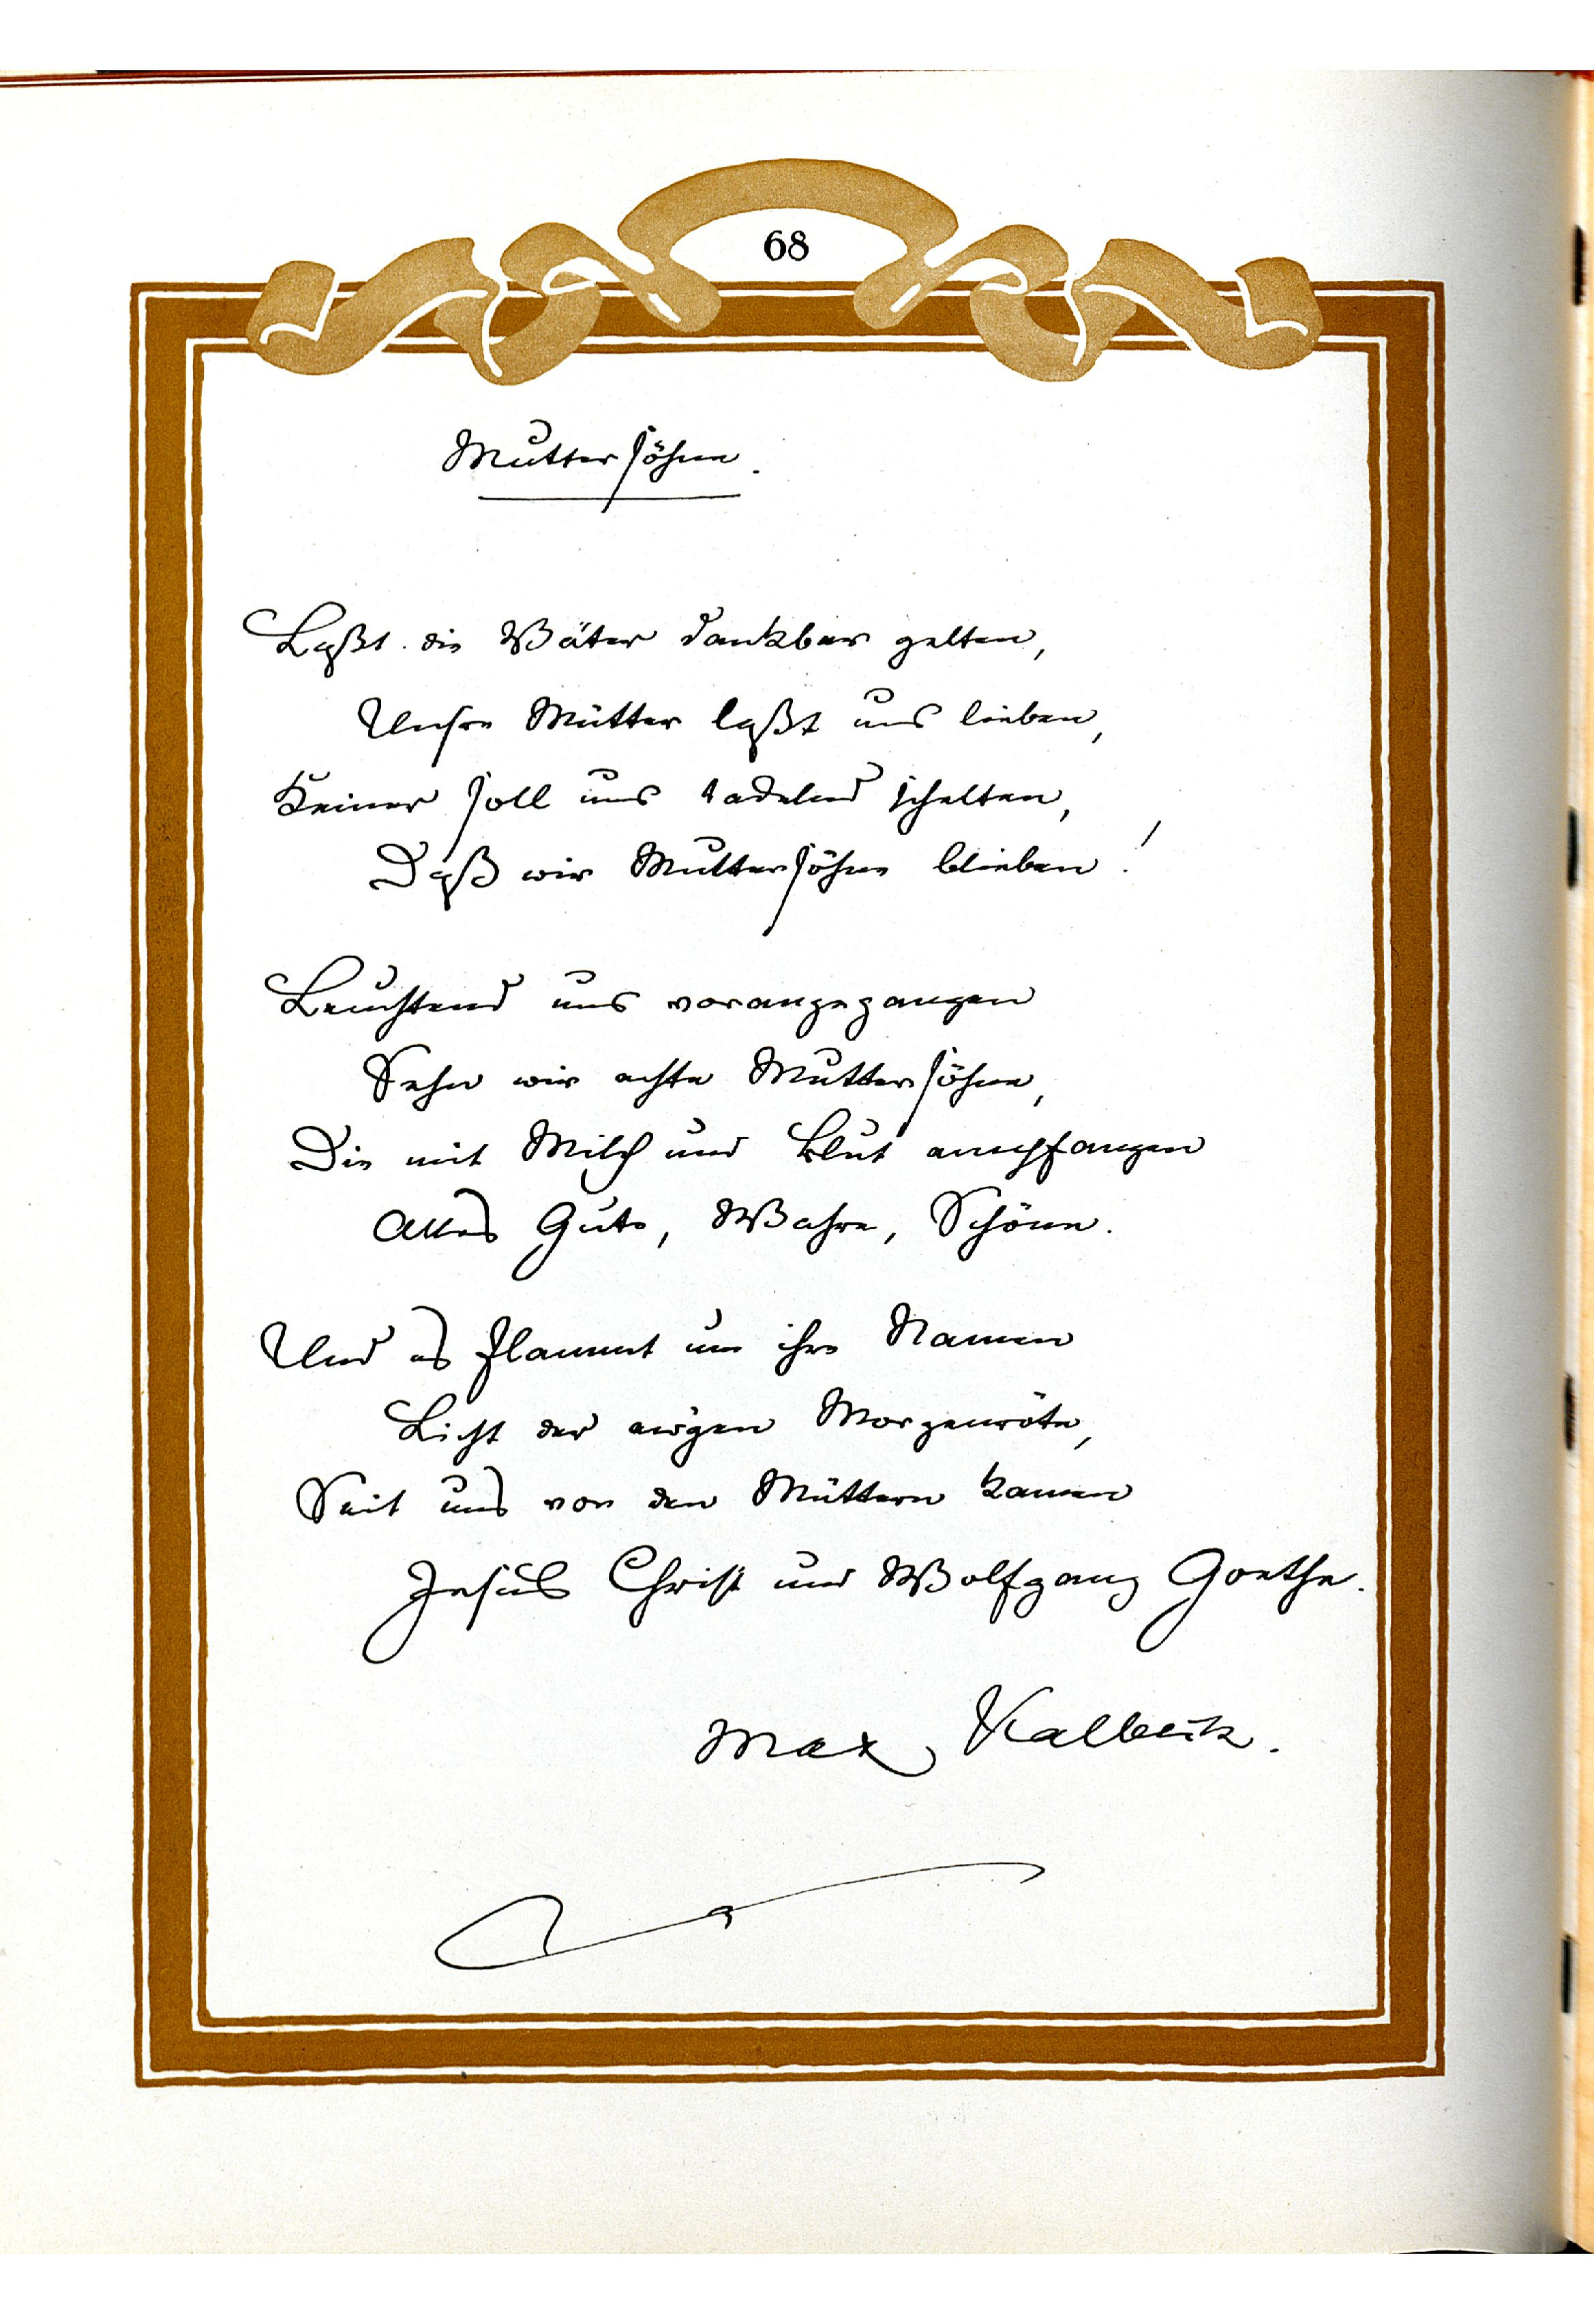 68
Muttersöhne.
Laßt die Väter dankbar gelten,
Unsre Mütter laßt uns lieben,
Keiner soll uns tadelnd schelten,
Daß wir Muttersöhne blieben!
Leuchtend uns vorangegangen
Sehn wir echte Muttersöhne,
Die mit Milch und Blut empfangen
Alles Gute, Wahre, Schöne.
Und es flammt um ihre Namen
Licht der ew'gen Morgenröte,
Seit uns von den Müttern kamen
Jesus Christ und Wolfgang Goethe.
Max Kalbeck.